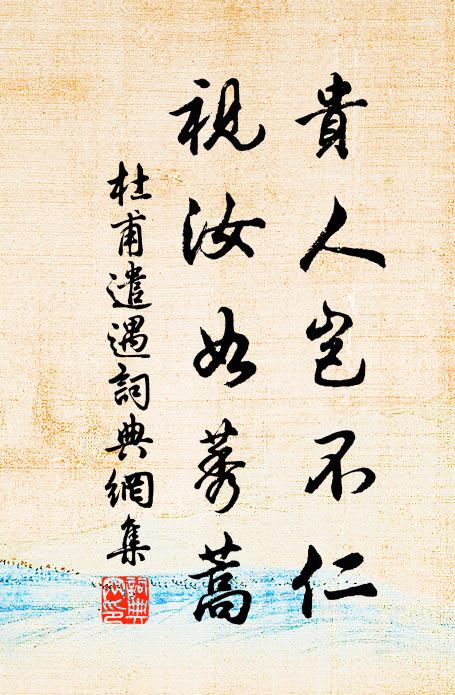 貴人岂不仁
視汝如莠蒿
杜甫遣遇詞典網集